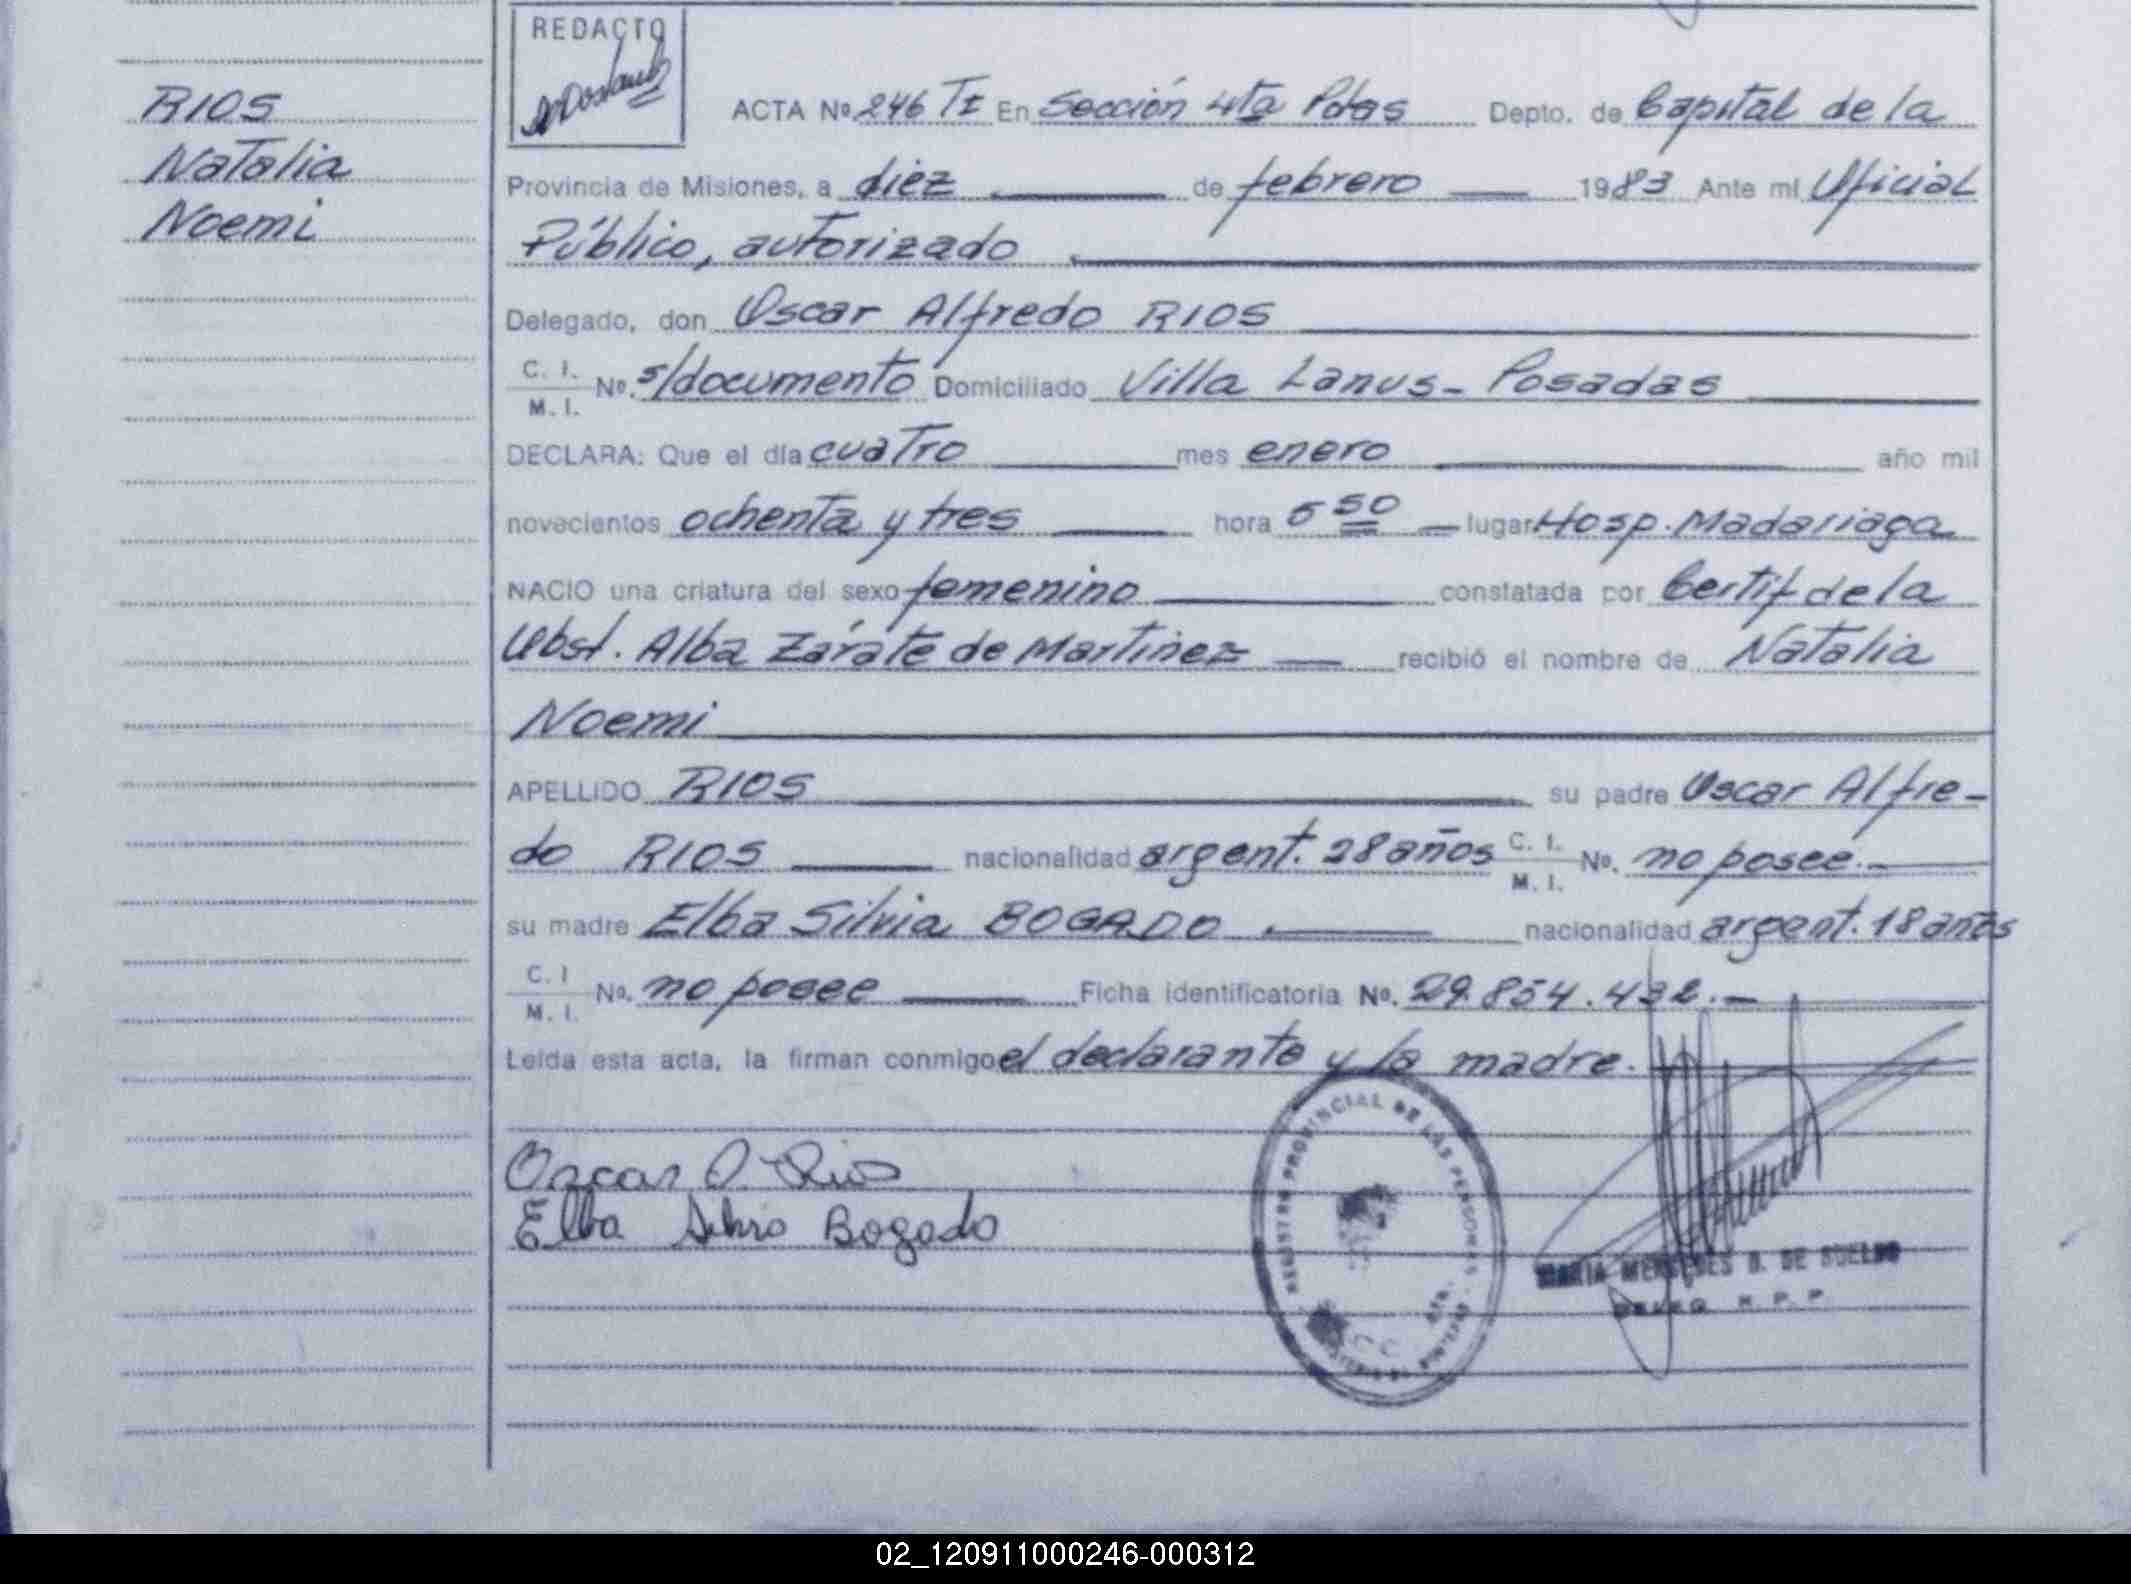 RIOS
Natalia
Noemi
REDACTO
ACTA Nº 246 TI En Sección 4ta Pdas Depto. de Capital de la
Provincia de Misiones, a diez de febrero 1983 Ante mí Oficial
Público, autorizado
Delegado, don Oscar Alfredo RIOS
C. I.
M. I. Nº. s/documento Domiciliado Villa Lanus - Posadas
DECLARA: Que el día cuatro mes enero año mil
novecientos ochenta y tres hora 5 50 lugar Hosp. Madariaga
NACIO una criatura del sexo femenino constatada por Certif de la
Obst. Alba Zárate de Martinez recibió el nombre de Natalia
Noemi
APELLIDO RIOS su padre Oscar Alfre-
do RIOS nacionalidad argent. 28 años C. I.
M. I. Nº. no posee.-
su madre Elba Silvia BOGADO nacionalidad argent. 18 años
C. I
M. I. Nº. no posee Ficha identificatoria Nº. 29.854.432.-
Leída esta acta, la firman conmigo el declarante y la madre.
Oscar A. Rios
Elba Silvia Bogado
REGISTRO PROVINCIAL DE LAS PERSONAS
MARIA MERCEDES D. DE
R. P. P.
02_120911000246-000312